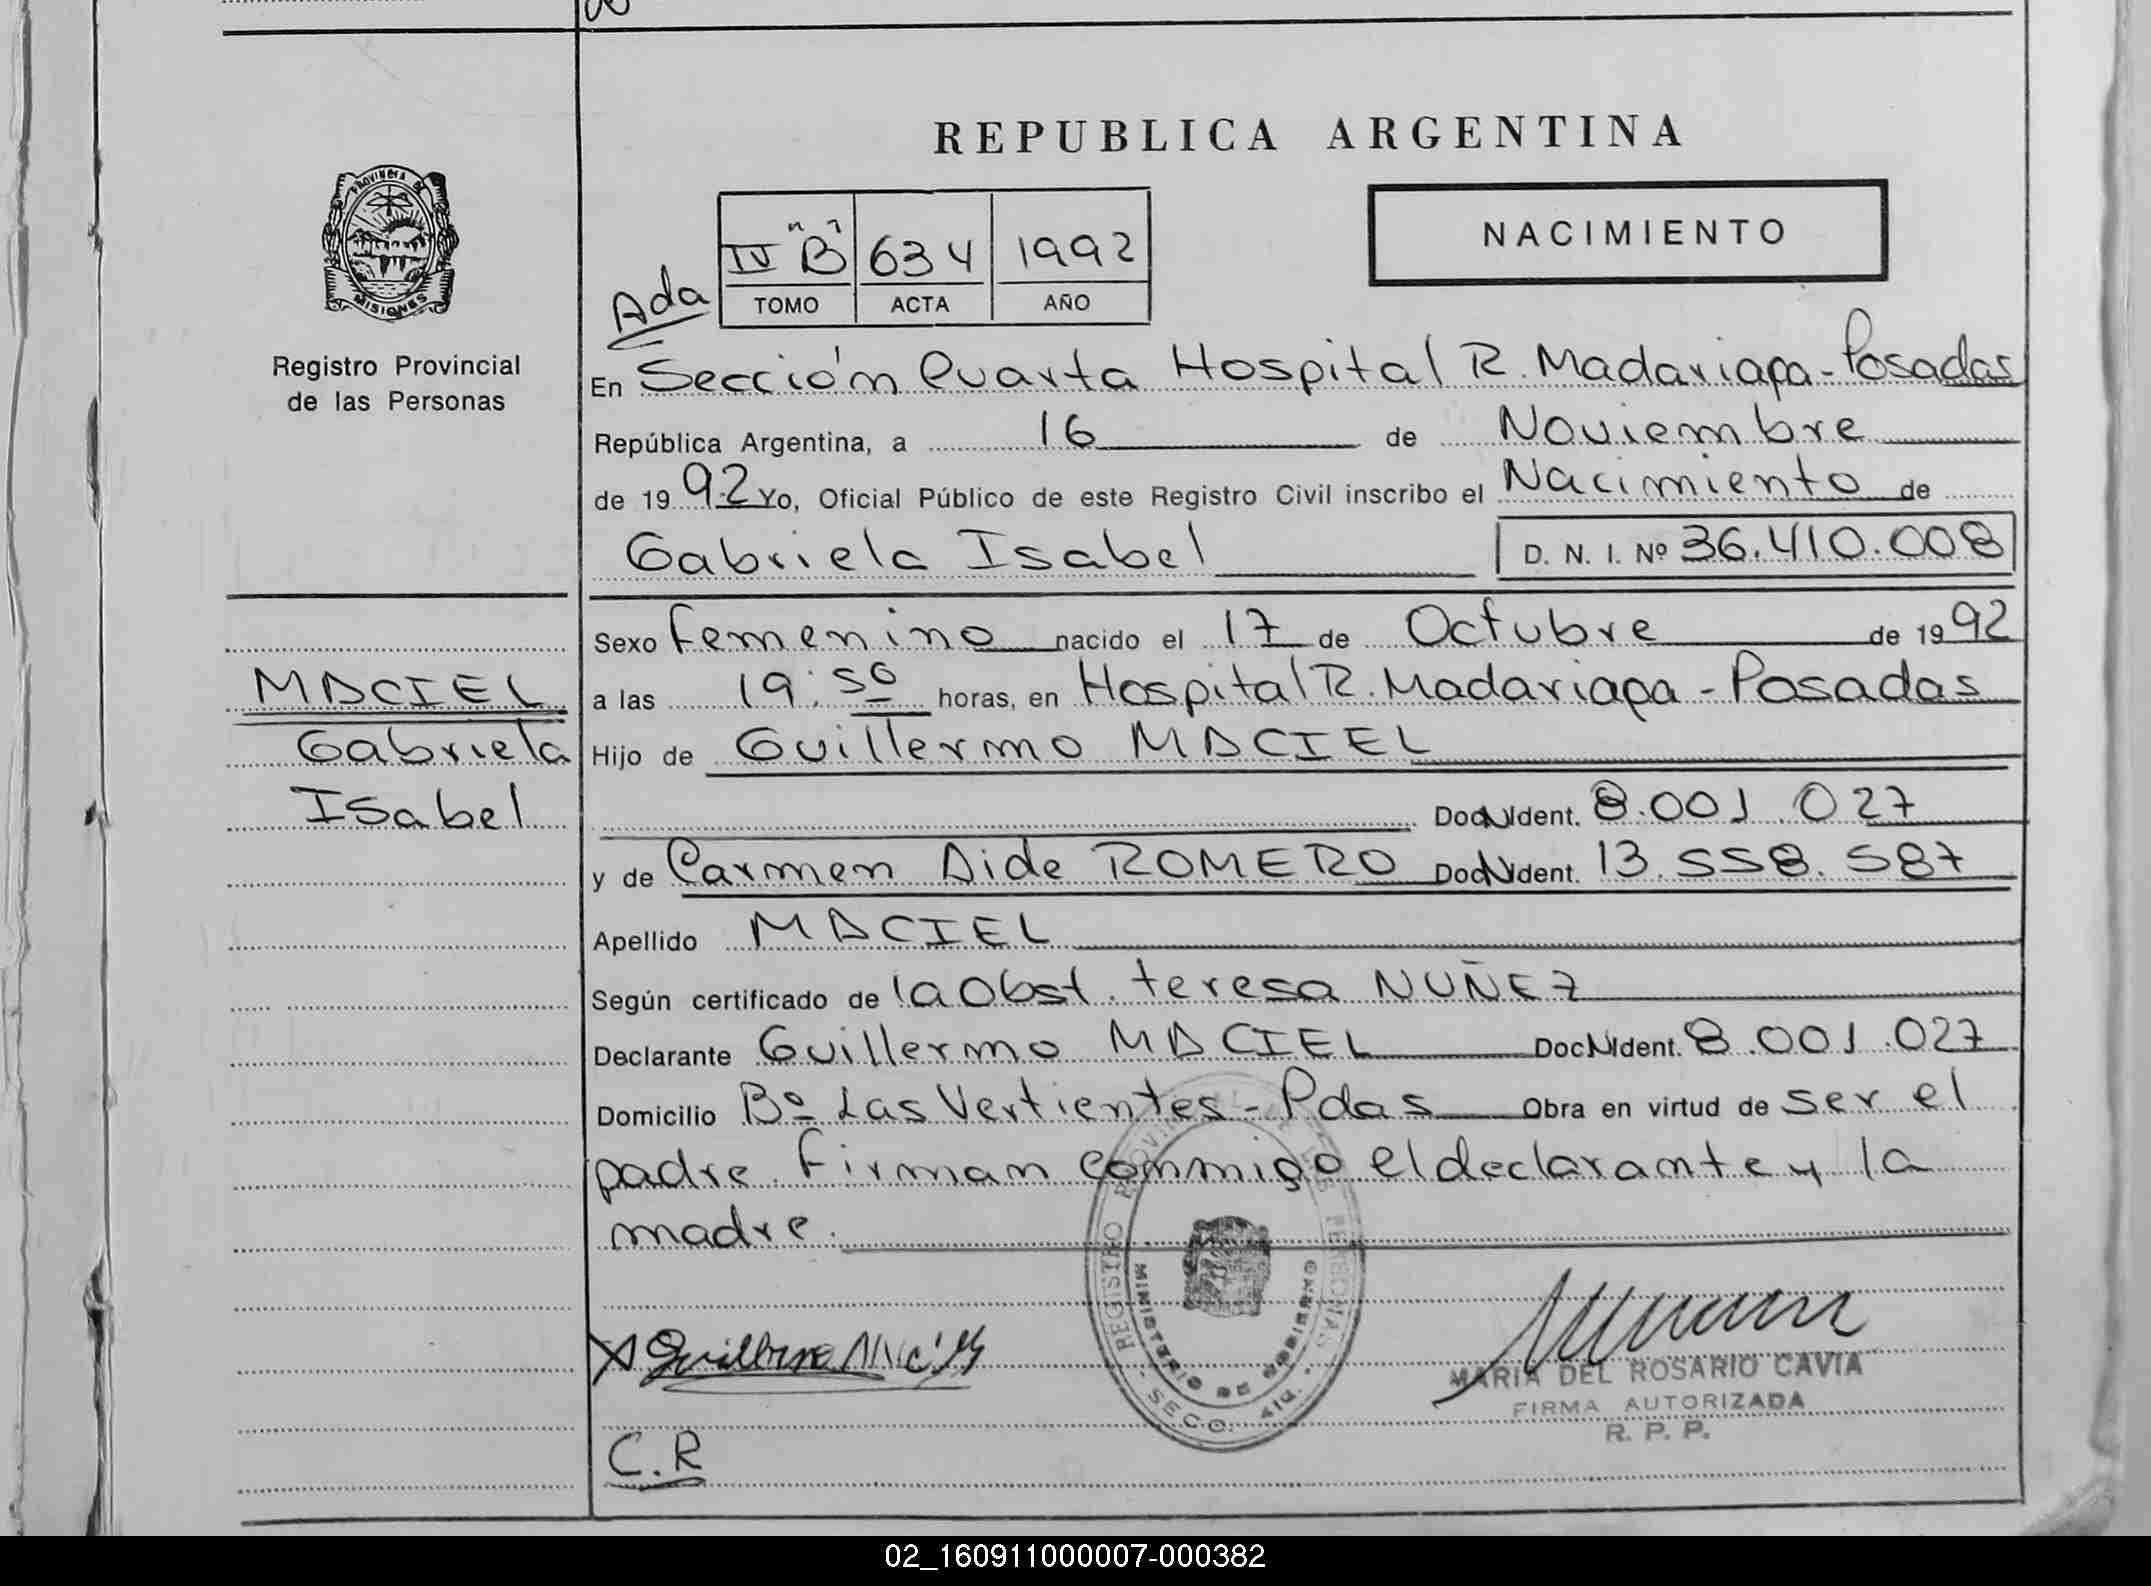 REPUBLICA ARGENTINA
PROVINCIA DE
MISIONES
Registro Provincial
de las Personas
NACIMIENTO
IV "B" 634 1992
TOMO ACTA AÑO
Ada
En Sección Cuarta Hospital R. Madariaga - Posadas
República Argentina, a 16 de Noviembre
de 1992 Yo, Oficial Público de este Registro Civil inscribo el Nacimiento de
Gabriela Isabel D. N. I. Nº 36.410.008
Sexo Femenino nacido el 17 de Octubre de 1992
a las 19:50 horas, en Hospital R. Madariaga - Posadas
MACIEL
Gabriela
Isabel
Hijo de Guillermo MACIEL
Doc. N. Ident. 8.001.027
y de Carmen Aide ROMERO Doc. N. Ident. 13.558.587
Apellido MACIEL
Según certificado de la Obst. teresa NUÑEZ
Declarante Guillermo MACIEL Doc. N. Ident. 8.001.027
Domicilio Bº Las Vertientes - Pdas Obra en virtud de ser el
padre. Firman conmigo el declarante y la
madre.
REGISTRO PROVINCIAL DE LAS PERSONAS
MINISTERIO DE GOBIERNO
SECC. 4ta.
MARIA DEL ROSARIO CAVIA
FIRMA AUTORIZADA
R. P. P.
C.R
02_160911000007-000382